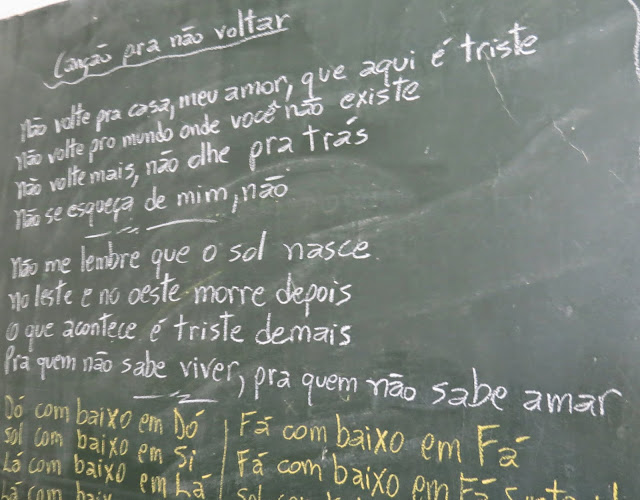 Canção pra não voltar
Não volte pra casa, meu amor, que aqui é triste
Não volte pro mundo onde você não existe
Não volte mais, não olhe pra trás
Não se esqueça de mim, não
Não me lembre que o sol nasce
No leste e no oeste morre depois
O que acontece é triste demais
Pra quem não sabe viver, pra quem não sabe amar
Dó com baixo em Dó
Sol com baixo em Si
Lá com baixo em Lá
Lá com
Fá com baixo em Fá
Fá com baixo em Fá
Sol